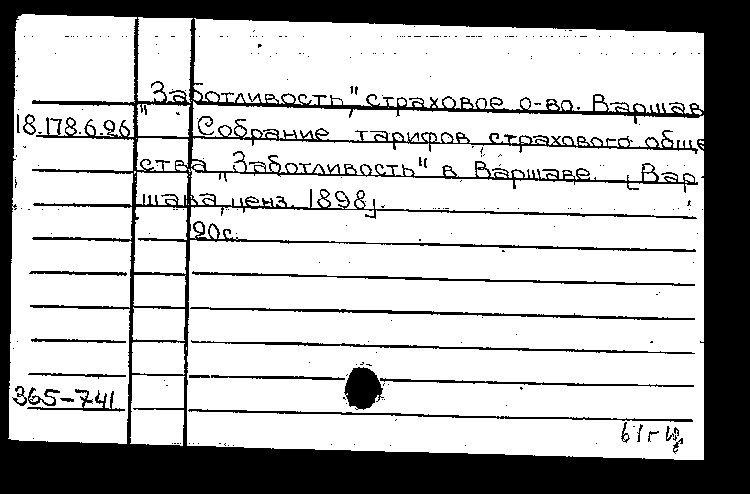 "Заботливость", страховое о-во. Варшав
18.178.6.26 Собрание тарифов страхового обще
ства "Заботливость" в Варшаве. [Вар-
шава, ценз. 1898].
20с.
365-741
61г